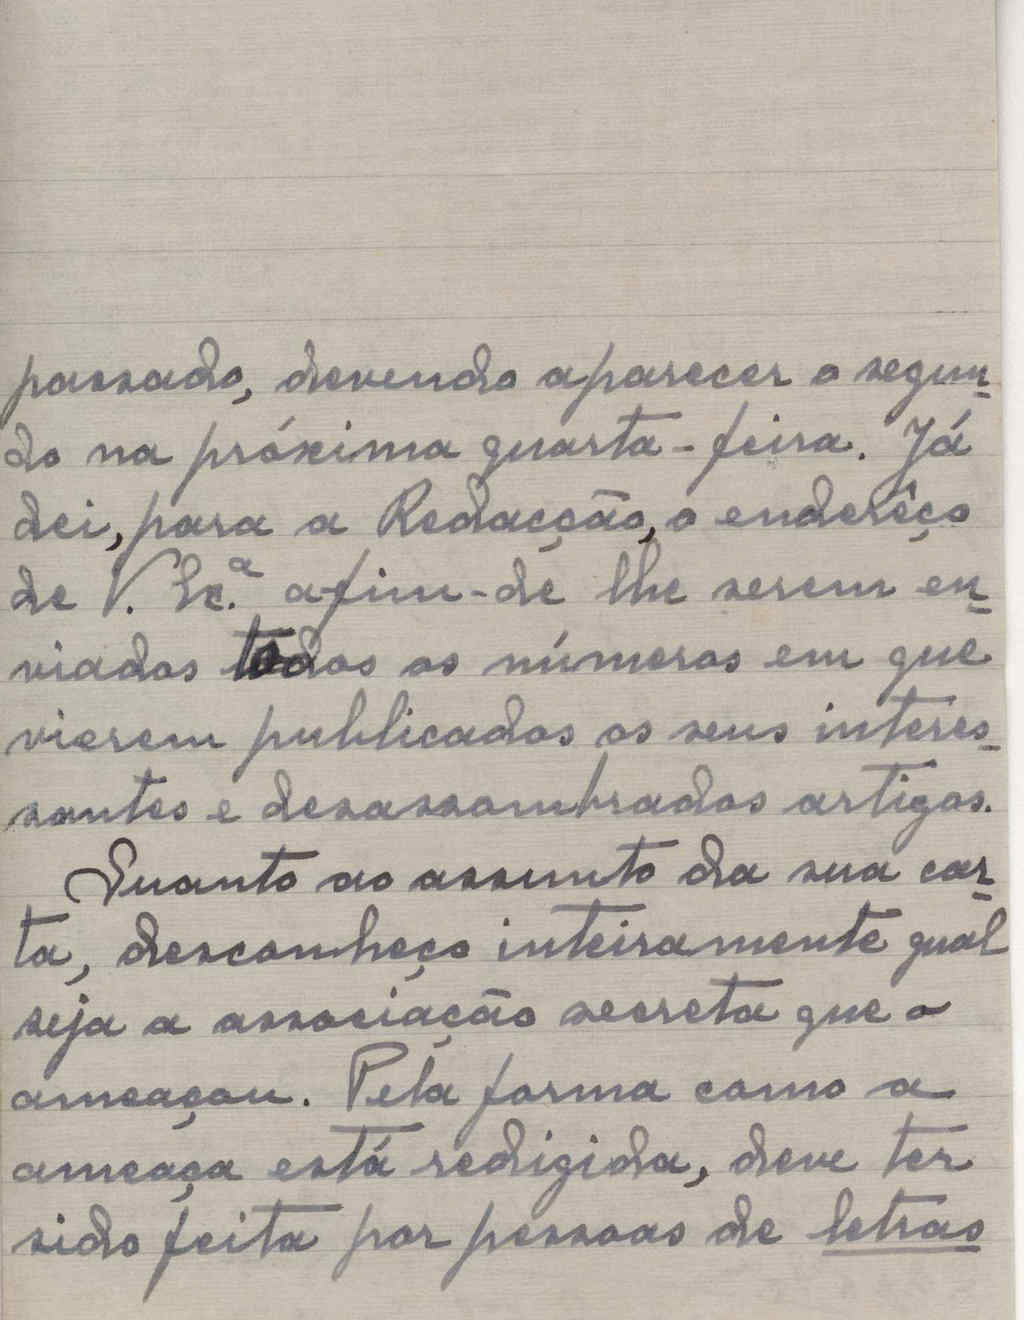 passado, devendo aparecer o segun-
do na próxima quarta-feira. Já
dei, para a Redacção, o enderêço
de V. Ex.ª afim-de lhe serem en-
viados todos os números em que
vierem publicados os seus interes-
santes e desassombrados artigos.
Quanto ao assunto da sua car-
ta, desconheço inteiramente qual
seja a associação secreta que o
ameaçou. Pela forma como a
ameaça está redigida, deve ter
sido feita por pessoas de letras